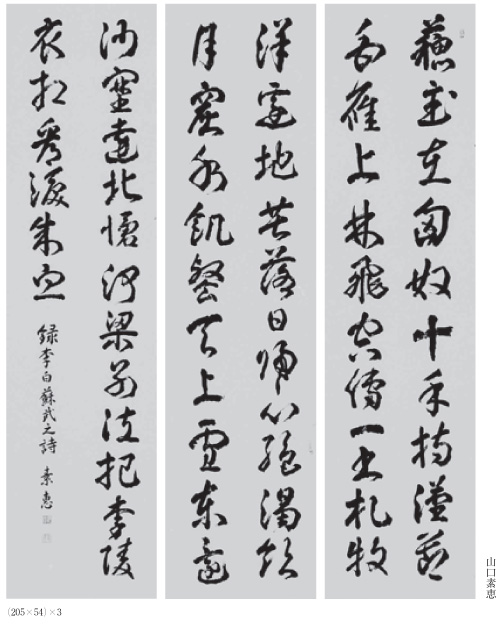 蘇武在匈奴十年持漢節
白雁上林飛空傳一書札牧
羊邊地苦落日歸心絶渇飲
月窟水飢餐天上雪東還
沙塞遠北愴河梁別泣把李陵
衣相看淚成血
録李白蘇武之詩 素惠
山口素恵
(205×54)×3